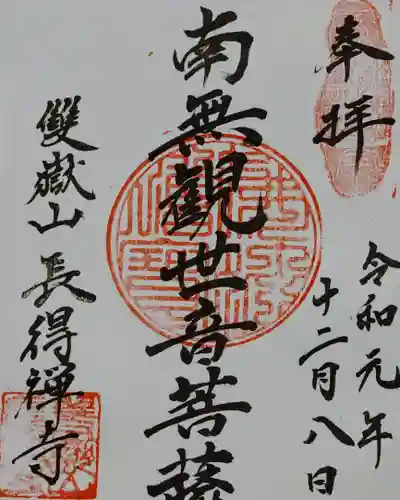 奉拝
令和元年
十二月八日
南無觀世音菩薩
雙嶽山長得禅寺